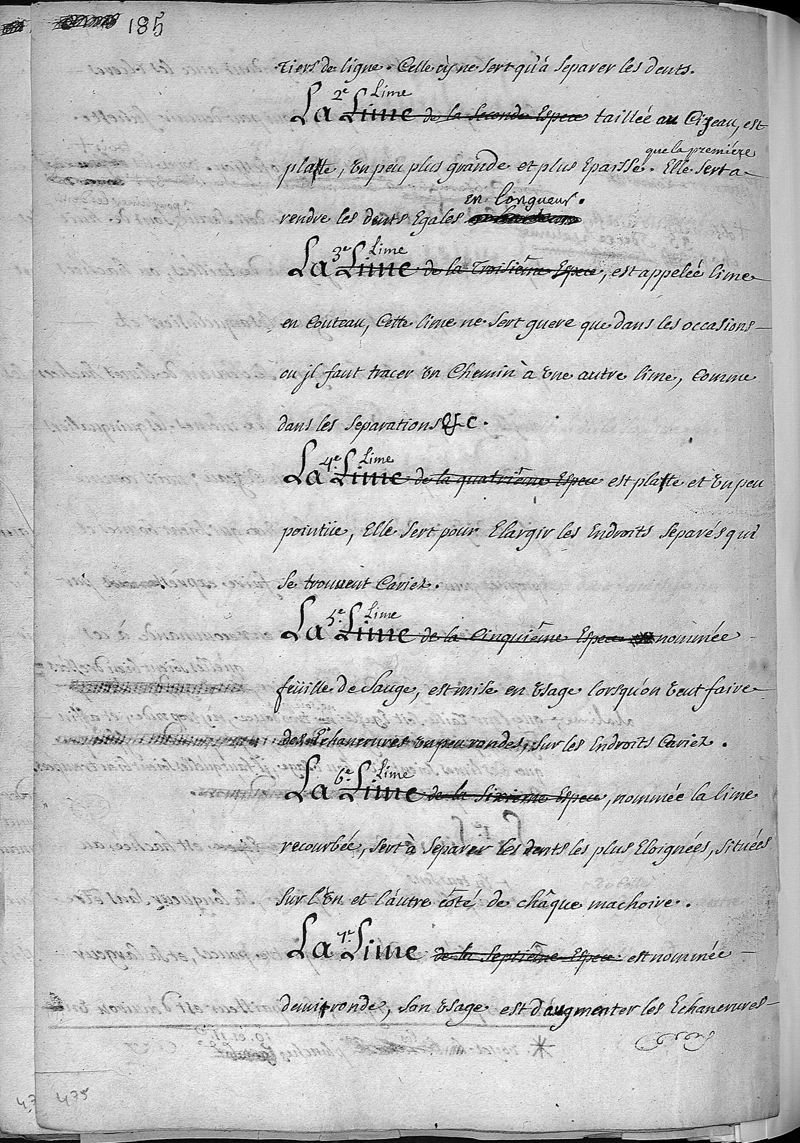 185
tiers de ligne. Celle cy ne sert qu'à separer les dents.
2e Lime
La Lime de la seconde Espece taillée au Cizeau, est
que la premiere
platte, un peu plus grande et plus Epaisse. Elle sert a
en longueur.
rendre les dents Egales
3e Lime
La Lime de la Troisiême Espece, est appelée lime
en Couteau, Cette lime ne sert guere que dans les occasions
ou jl faut tracer un Chemin à une autre lime, Comme
dans les separations &c.
4e Lime
La Lime de la quatriême Espece est platte et un peu
pointüe, Elle sert pour Elargir les Endroits separés qui
se trouuent Cariez.
5e Lime
La Lime de la Cinquiême Espece nommée
feüille de sauge, est mise en usage lorsqu'on veut faire
des Echancrures un peu rondes, sur les Endroits Cariez.
6e Lime
La Lime de la Sixieme Espece, nommée la lime
recourbée, sert à separer les dents les plus Eloignées, situées
sur l'un et l'autre côté de châque machoire.
7e
La Lime de la Septiême Espece est nommée
demi ronde, son usage est d'augmenter les Echancrures
475